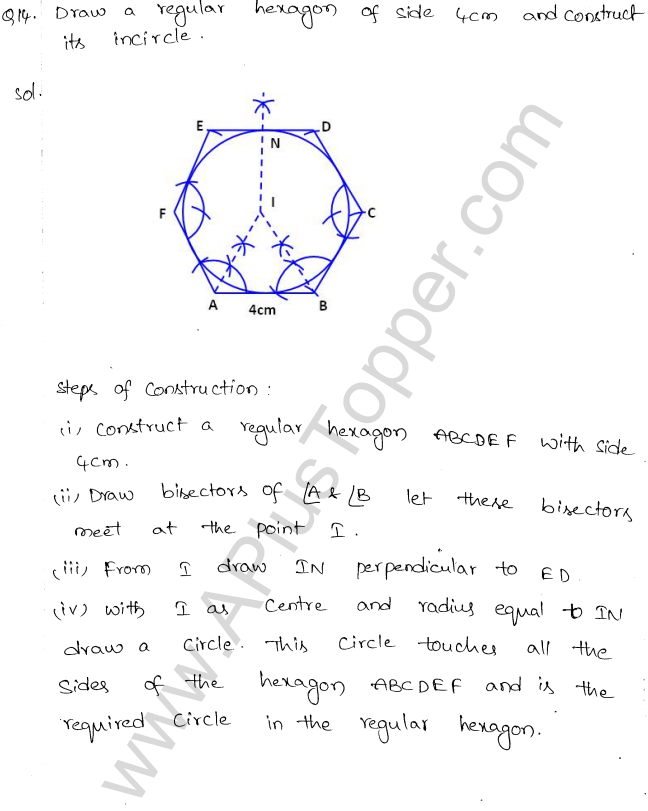 Q14. Draw a regular hexagon of side 4cm and construct
its incircle.
sol.
E
D
N
F
I
C
A
4cm
B
steps of construction :
(i) construct a regular hexagon ABCDEF with side
4cm.
(ii) Draw bisectors of ∠A & ∠B let these bisectors
meet at the point I.
(iii) From I draw IN perpendicular to ED
(iv) with I as centre and radius equal to IN
draw a circle. This circle touches all the
sides of the hexagon ABCDEF and is the
required circle in the regular hexagon.
www.APlusTopper.com